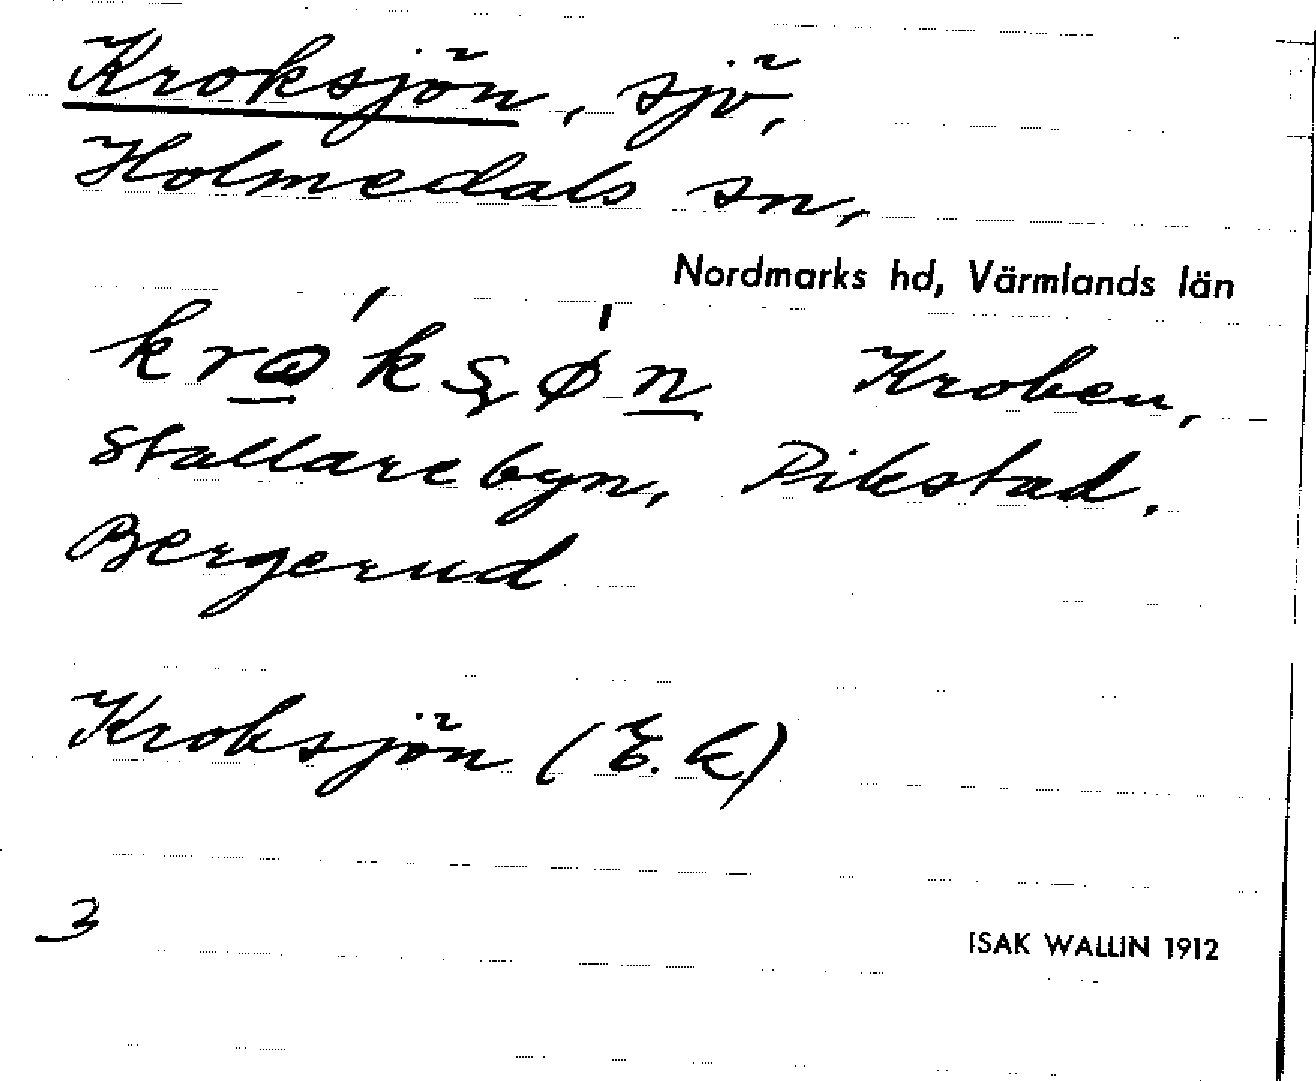 Kroksjön, sjö,
Holmedals sn,
Nordmarks hd, Värmlands län
Kroken,
Stallarebyn, Rikstad.
Bergerud
Kroksjön (E.k)
3
ISAK WALLIN 1912